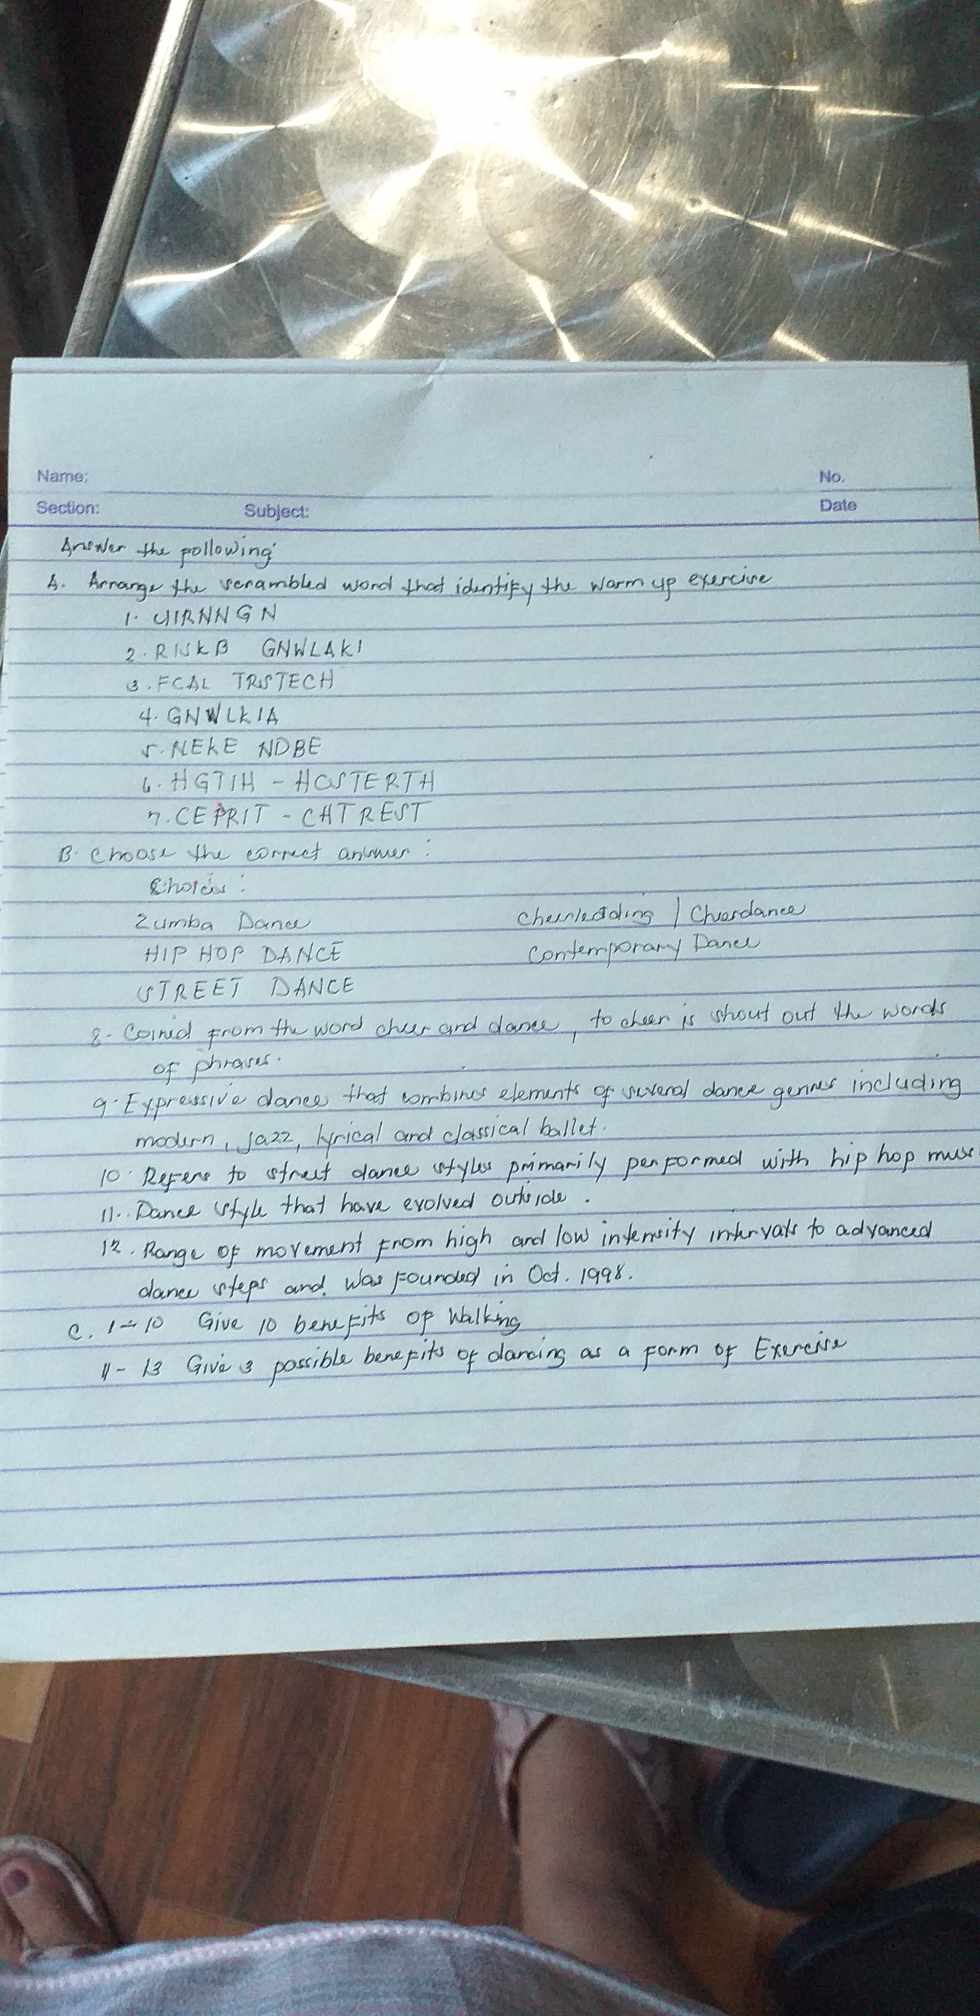 Name: No.
Section: Subject: Date
Answer the following
A. Arrange the scrambled word that identify the warm up exercise
1. UIRNNGN
2. RISKB GNWLAKI
3. FCAL TRSTECH
4. GNWLKIA
5. NEKE NDBE
6. HGTIH - HCSTERTH
7. CEPRIT - CHTREST
B. Choose the correct answer :
Choices :
Zumba Dance Cheerleading / Cheerdance
HIP HOP DANCE Contemporary Dance
STREET DANCE
8. Coined from the word cheer and dance, to cheer is shout out the words
of phrases.
9. Expressive dance that combines elements of several dance genres including
modern, jazz, lyrical and classical ballet.
10. Refers to street dance styles primarily performed with hip hop music
11. Dance style that have evolved outside .
12. Range of movement from high and low intensity intervals to advanced
dance steps and was founded in Oct. 1998.
C. 1-10 Give 10 benefits of Walking
11-13 Give 3 possible benefits of dancing as a form of Exercise